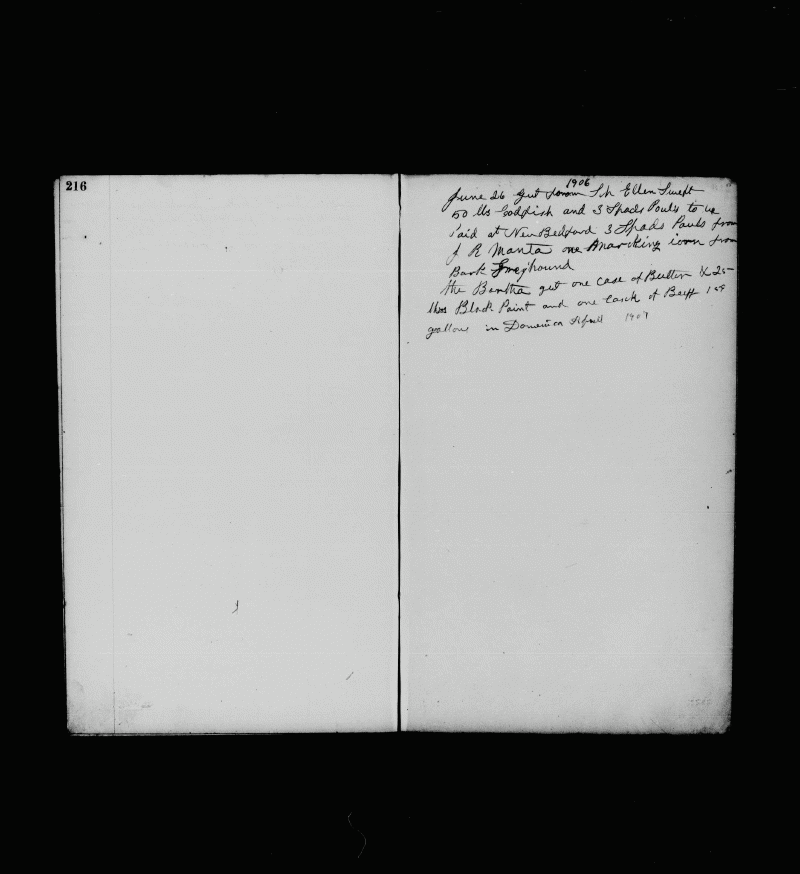 216
1906
June 26 gut from Sch Ellen Swift
50 lbs Codfish and 3 Spads Pouls to us
Paid at New Bedford 3 Spads Pouls from
J R Manta one Anarcking iron from
Bark Greyhound
the Bertha gut one case of Butter & 25
lbs Black Paint and one cask of Beeff
gallons in Domenica April 1907